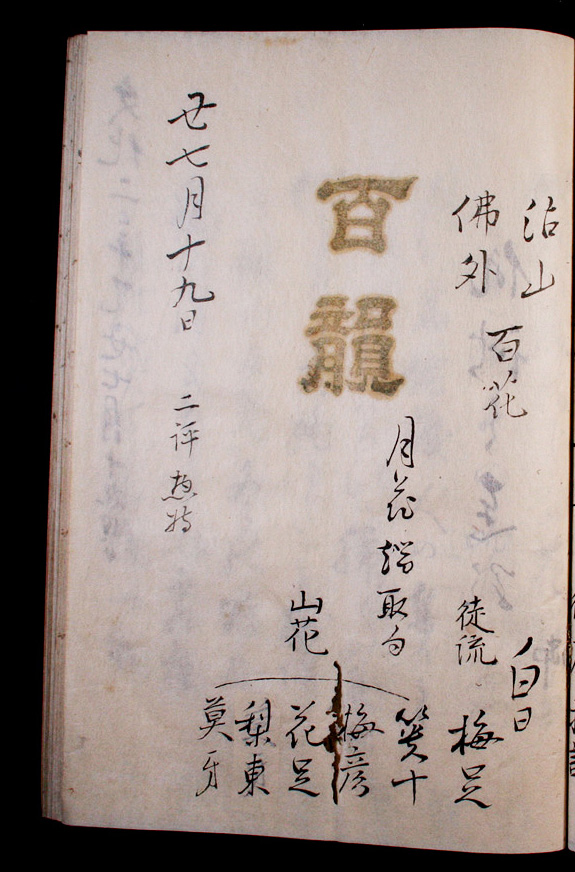 沾山
佛外
百花
白日
徒流
梅足
百韻
月花
取句
笑十
山花
梅彦
花足
梨東
莫牙
廿七月十九日
二評